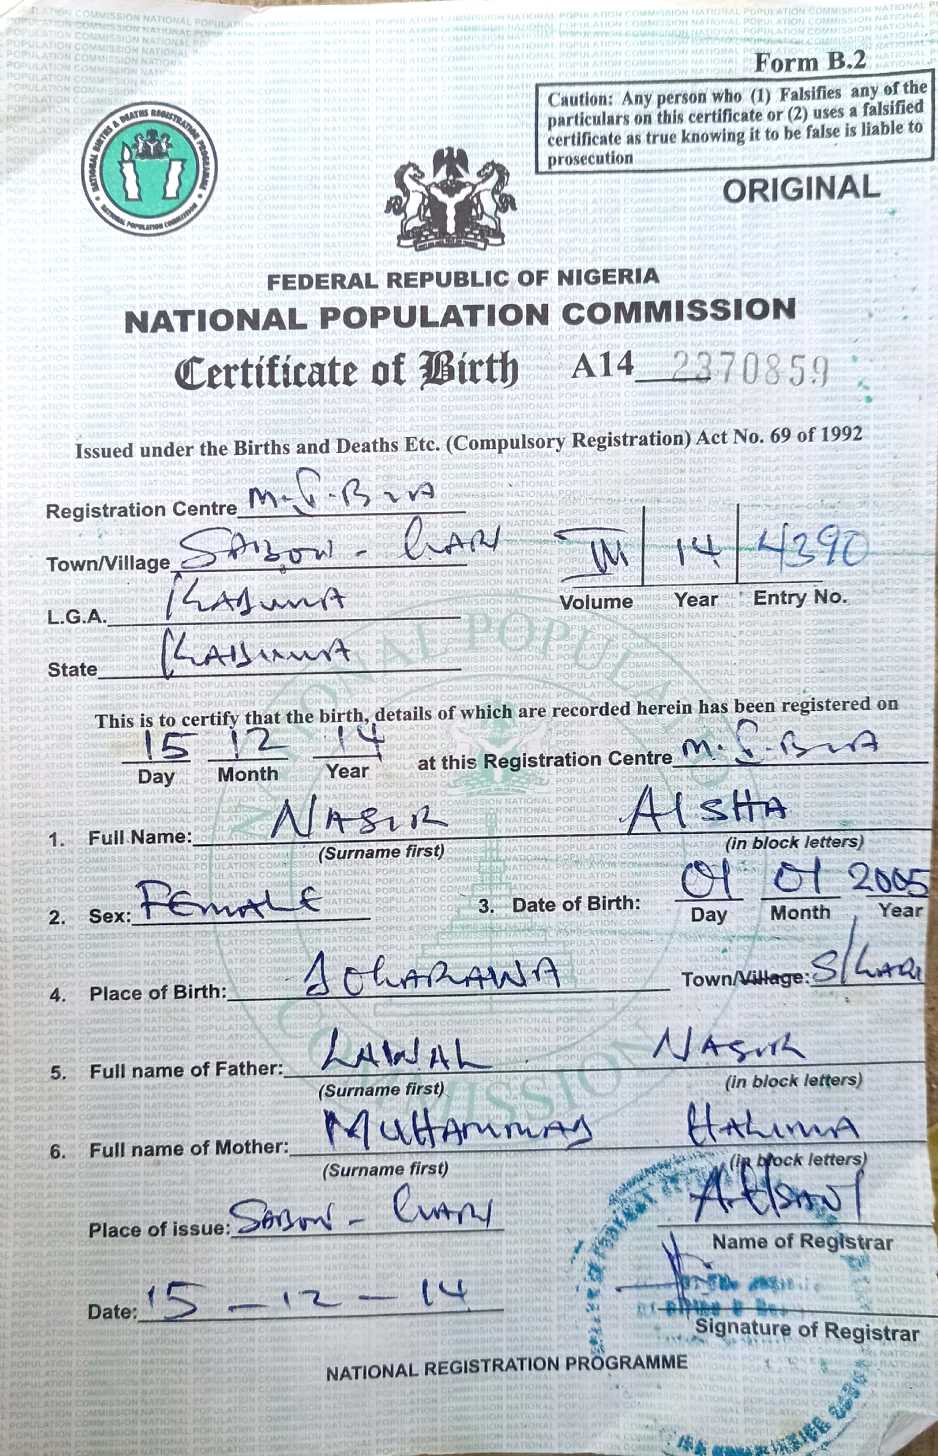 Form B.2
Caution: Any person who (1) Falsifies any of the
particulars on this certificate or (2) uses a falsified
certificate as true knowing it to be false is liable to
prosecution
ORIGINAL
NATIONAL BIRTHS & DEATHS REGISTRATION PROGRAMME
NATIONAL POPULATION COMMISSION
FEDERAL REPUBLIC OF NIGERIA
NATIONAL POPULATION COMMISSION
Certificate of Birth A14 2370859
Issued under the Births and Deaths Etc. (Compulsory Registration) Act No. 69 of 1992
Registration Centre
Town/Village SABON - GARI
L.G.A. KADUNA
State KADUNA
14 4390
Volume Year Entry No.
This is to certify that the birth, details of which are recorded herein has been registered on
15 12 14 at this Registration Centre
Day Month Year
1. Full Name: NASIR AISHA
(Surname first) (in block letters)
2. Sex: FEMALE 3. Date of Birth: 01 01 2005
Day Month Year
4. Place of Birth: Town/Village: S/GARI
5. Full name of Father: LAWAL NASIR
(Surname first) (in block letters)
6. Full name of Mother: MUHAMMAD HALIMA
(Surname first) (in block letters)
Place of issue: SABON - GARI
Name of Registrar
Date: 15 - 12 - 14
Signature of Registrar
NATIONAL REGISTRATION PROGRAMME